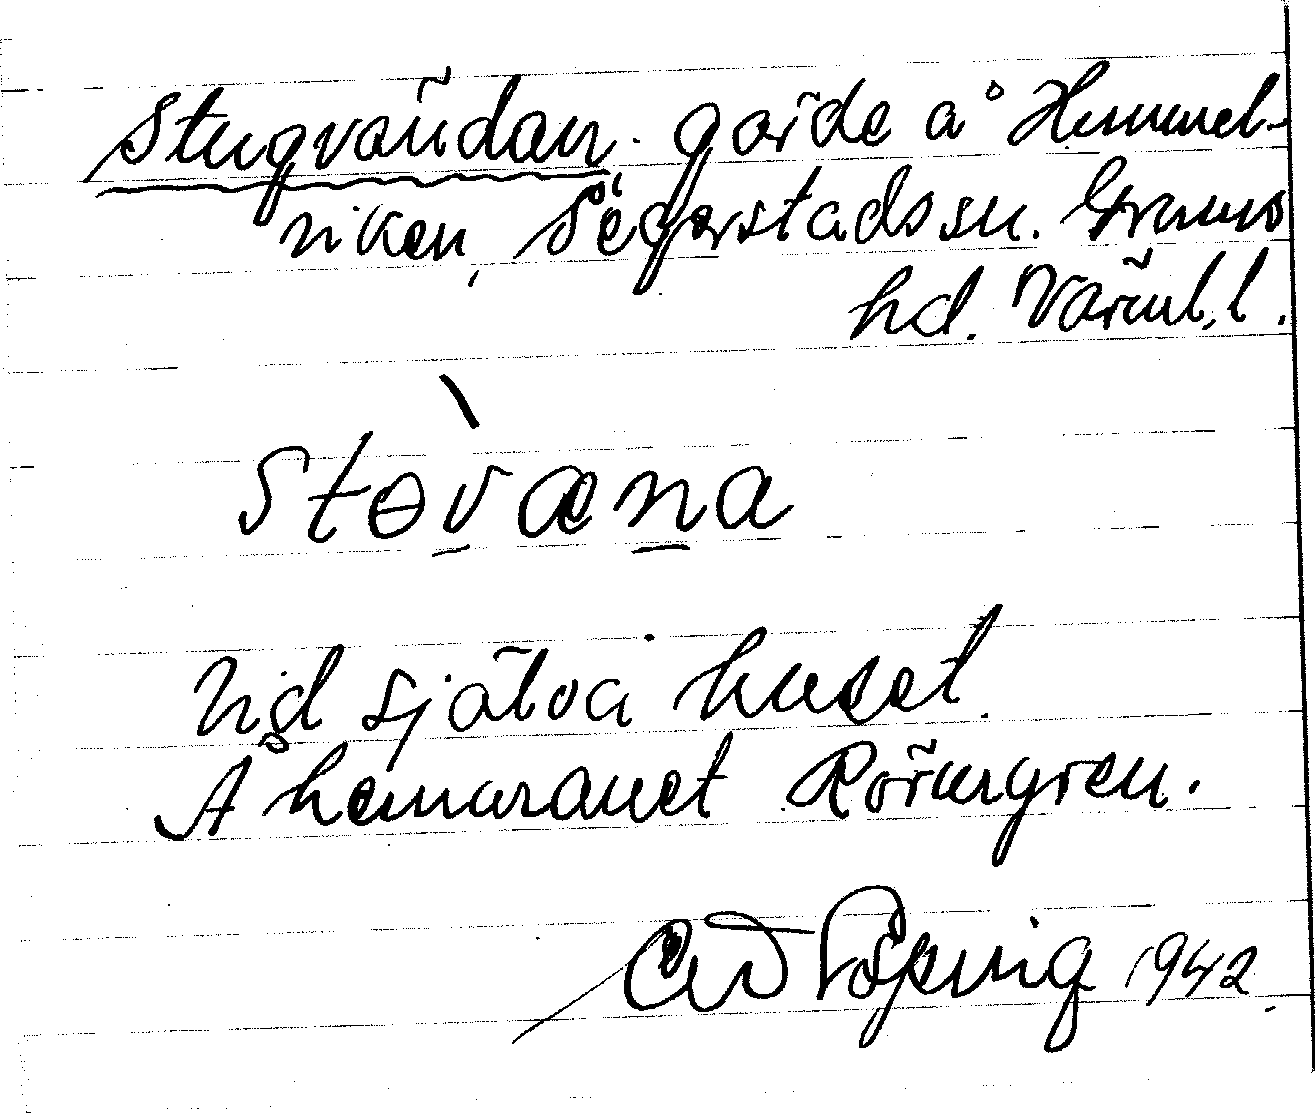 Stugvändan. gärde å Hemmel-
viken, Segerstads sn. Grums
hd. Värml. l.
Støvæna
Vid själva huset.
Å hemmanet Rörvngren.
C W Köping 1942